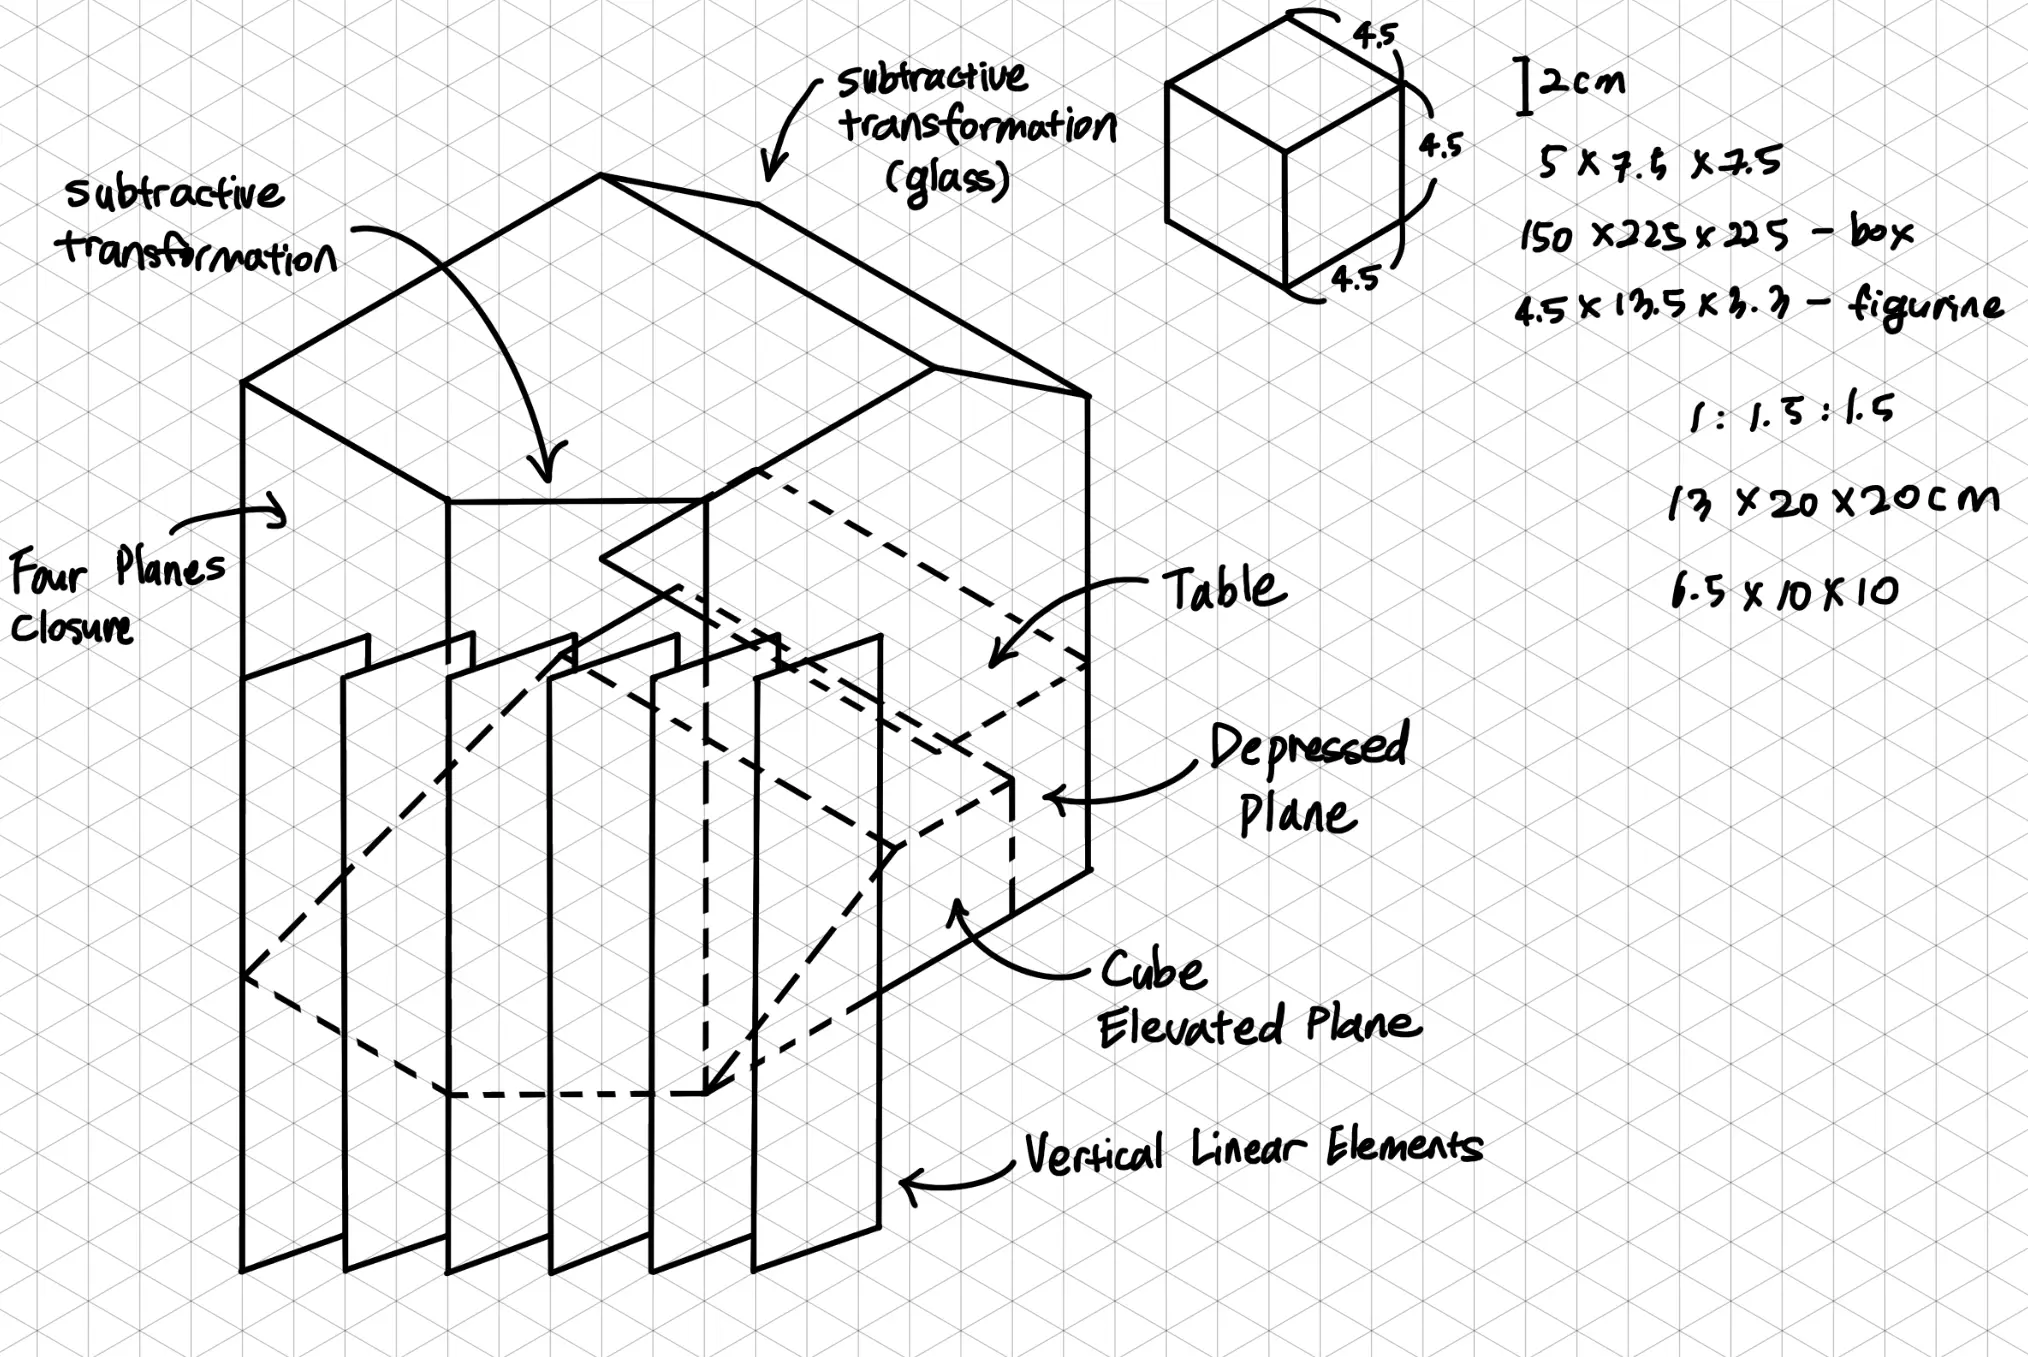 subtractive
transformation
(glass)
subtractive
transformation
Four Planes
Closure
Table
Depressed
Plane
Cube
Elevated Plane
Vertical Linear Elements
4.5
4.5
4.5
2cm
5 x 7.5 x 7.5
150 x 225 x 225 - box
4.5 x 13.5 x 3.3 - figurine
1 : 1.5 : 1.5
13 x 20 x 20cm
6.5 x 10 x 10